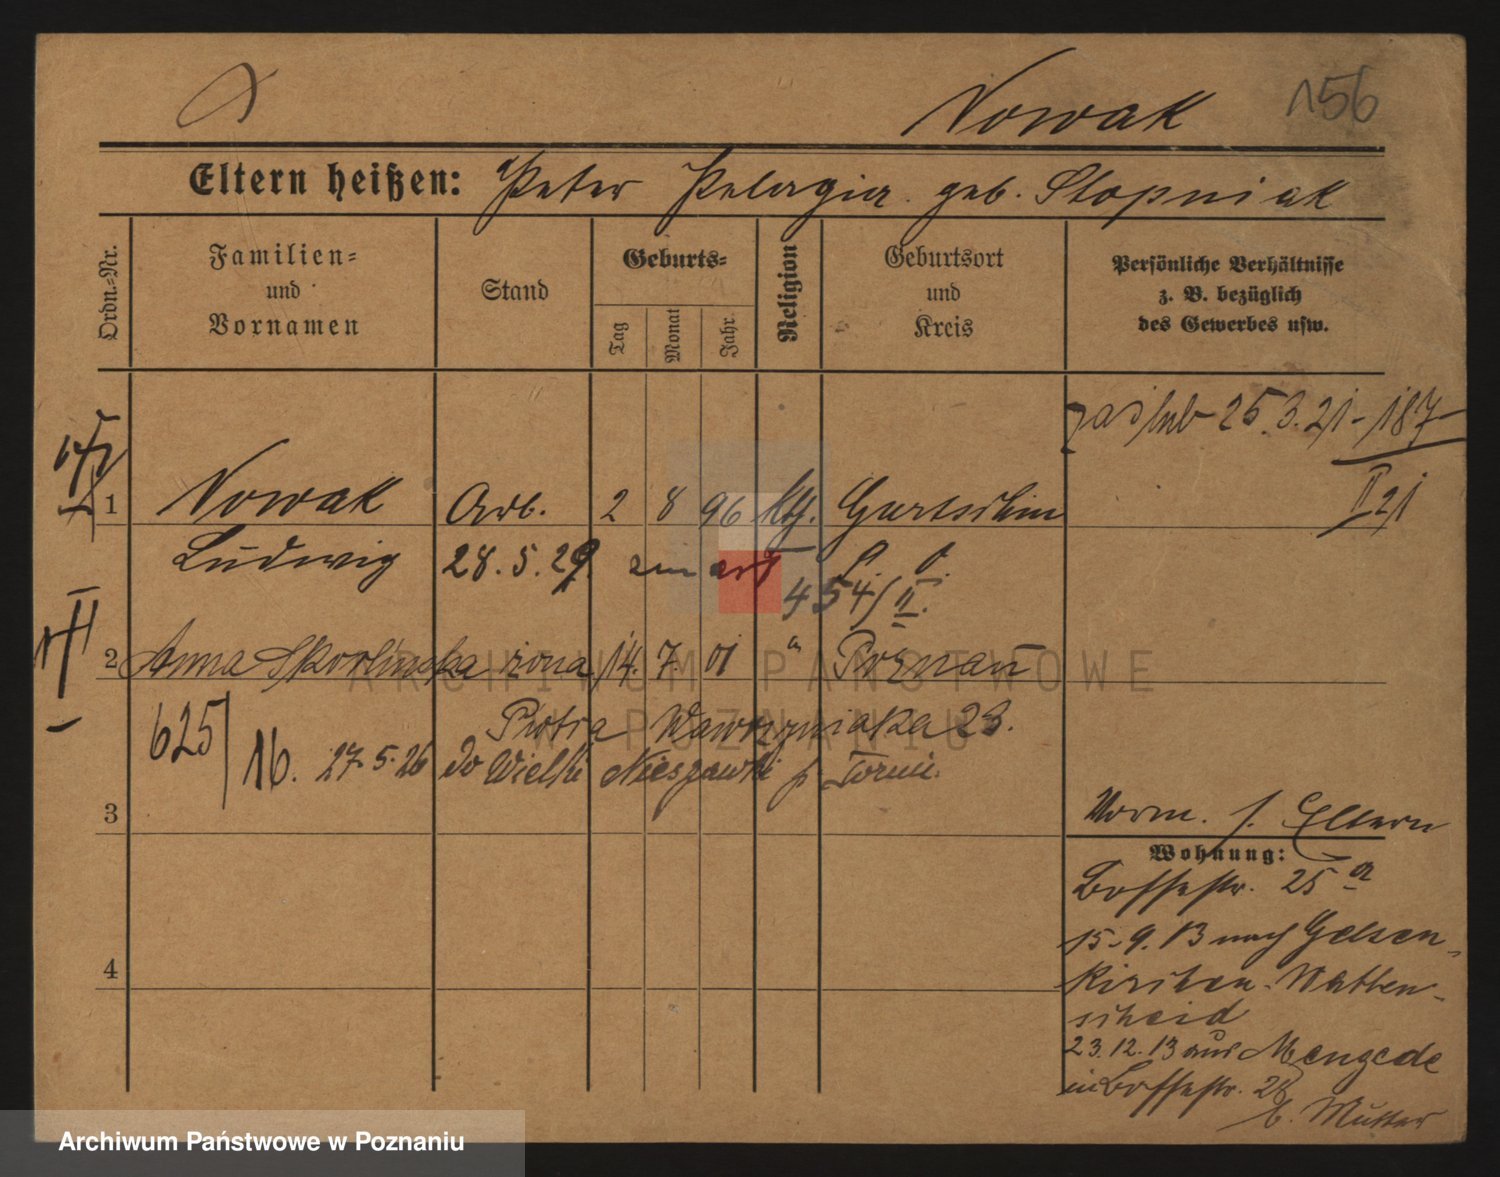 Nowak 156
Eltern heißen: Peter Pelagia geb. Stopniak
Ordn.=Nr.
Familien=
und
Vornamen
Stand
Geburts=
Tag
Monat
Jahr
Religion
Geburtsort
und
Kreis
Persönliche Verhältnisse
z. B. bezüglich
des Gewerbes usw.
zaślub 25.3.21-187
II 21
1 Nowak Arb. 2 8 96 kth. Gurtschin
Ludwig 28.5.29. P. O.
454/II.
2 Anna Skorlinska żona 14. 7. 01 " Poznań
625/16. Piotra Wawrzyniaka 23.
27.5.26 do Wielki Nieszawki p. Toruń.
3
4
Vorm. s. Eltern
Wohnung:
Bossestr. 25 a
15.9.13 nach Gelsen-
kirchen-Watten-
scheid
23.12.13 aus Mengede
in Bossestr. 28
b. Mutter
ARCHIWUM PAŃSTWOWE
W POZNANIU
Archiwum Państwowe w Poznaniu